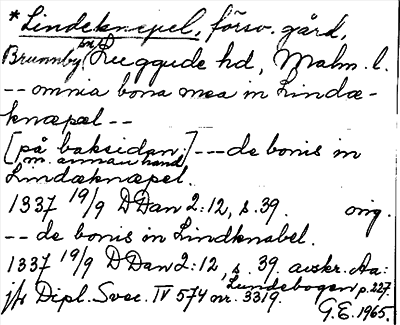 *Lindeknepel, försv. gård,
Brunnby sn, Luggude hd, Malm. l.
-- omnia bona mea in Lindæ-
knæpæl --
[på baksidan, m. annan hand] --- de bonis in
Lindæknæpel.
1337 19/9 DDan 2:12, s. 39. orig.
-- de bonis in Lindknabel.
1337 19/9 DDan 2:12, s. 39. avskr. Aa:
Lundebogen p. 227.
jfr Dipl. Svec. IV 574 nr. 3319.
G.E. 1965.